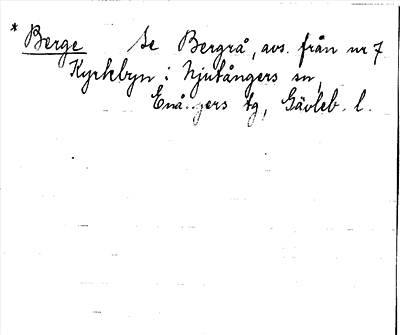 * Berge Se Bergrå, avs. från nr 7
Kyrkbyn i Njutångers sn,
Enångers tg, Gävleb. l.